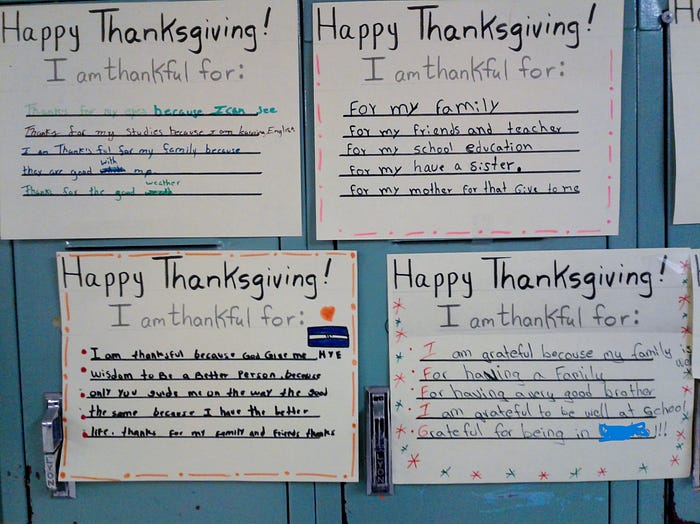 Happy Thanksgiving!
I am thankful for:
Thanks for my eyes because I can see
Thanks for my studies because I am learning English
I am Thanks ful for my family because
they are good with me
Thanks for the good weather
Happy Thanksgiving!
I am thankful for:
For my Family
For my friends and teacher
For my school education
For my have a sister.
For my mother for that Give to me
Happy Thanksgiving!
I am thankful for:
I am thankful because God Give me
wisdom to Be a Better Person because
only You guide me on the way the good
the same because I have the better
life. thanks for my family and friends thanks
Happy Thanksgiving!
I am thankful for:
I am grateful because my family is
For having a Family
For having a very good brother
I am grateful to be well at school
Grateful for being in !!!
H
LYON
LYON